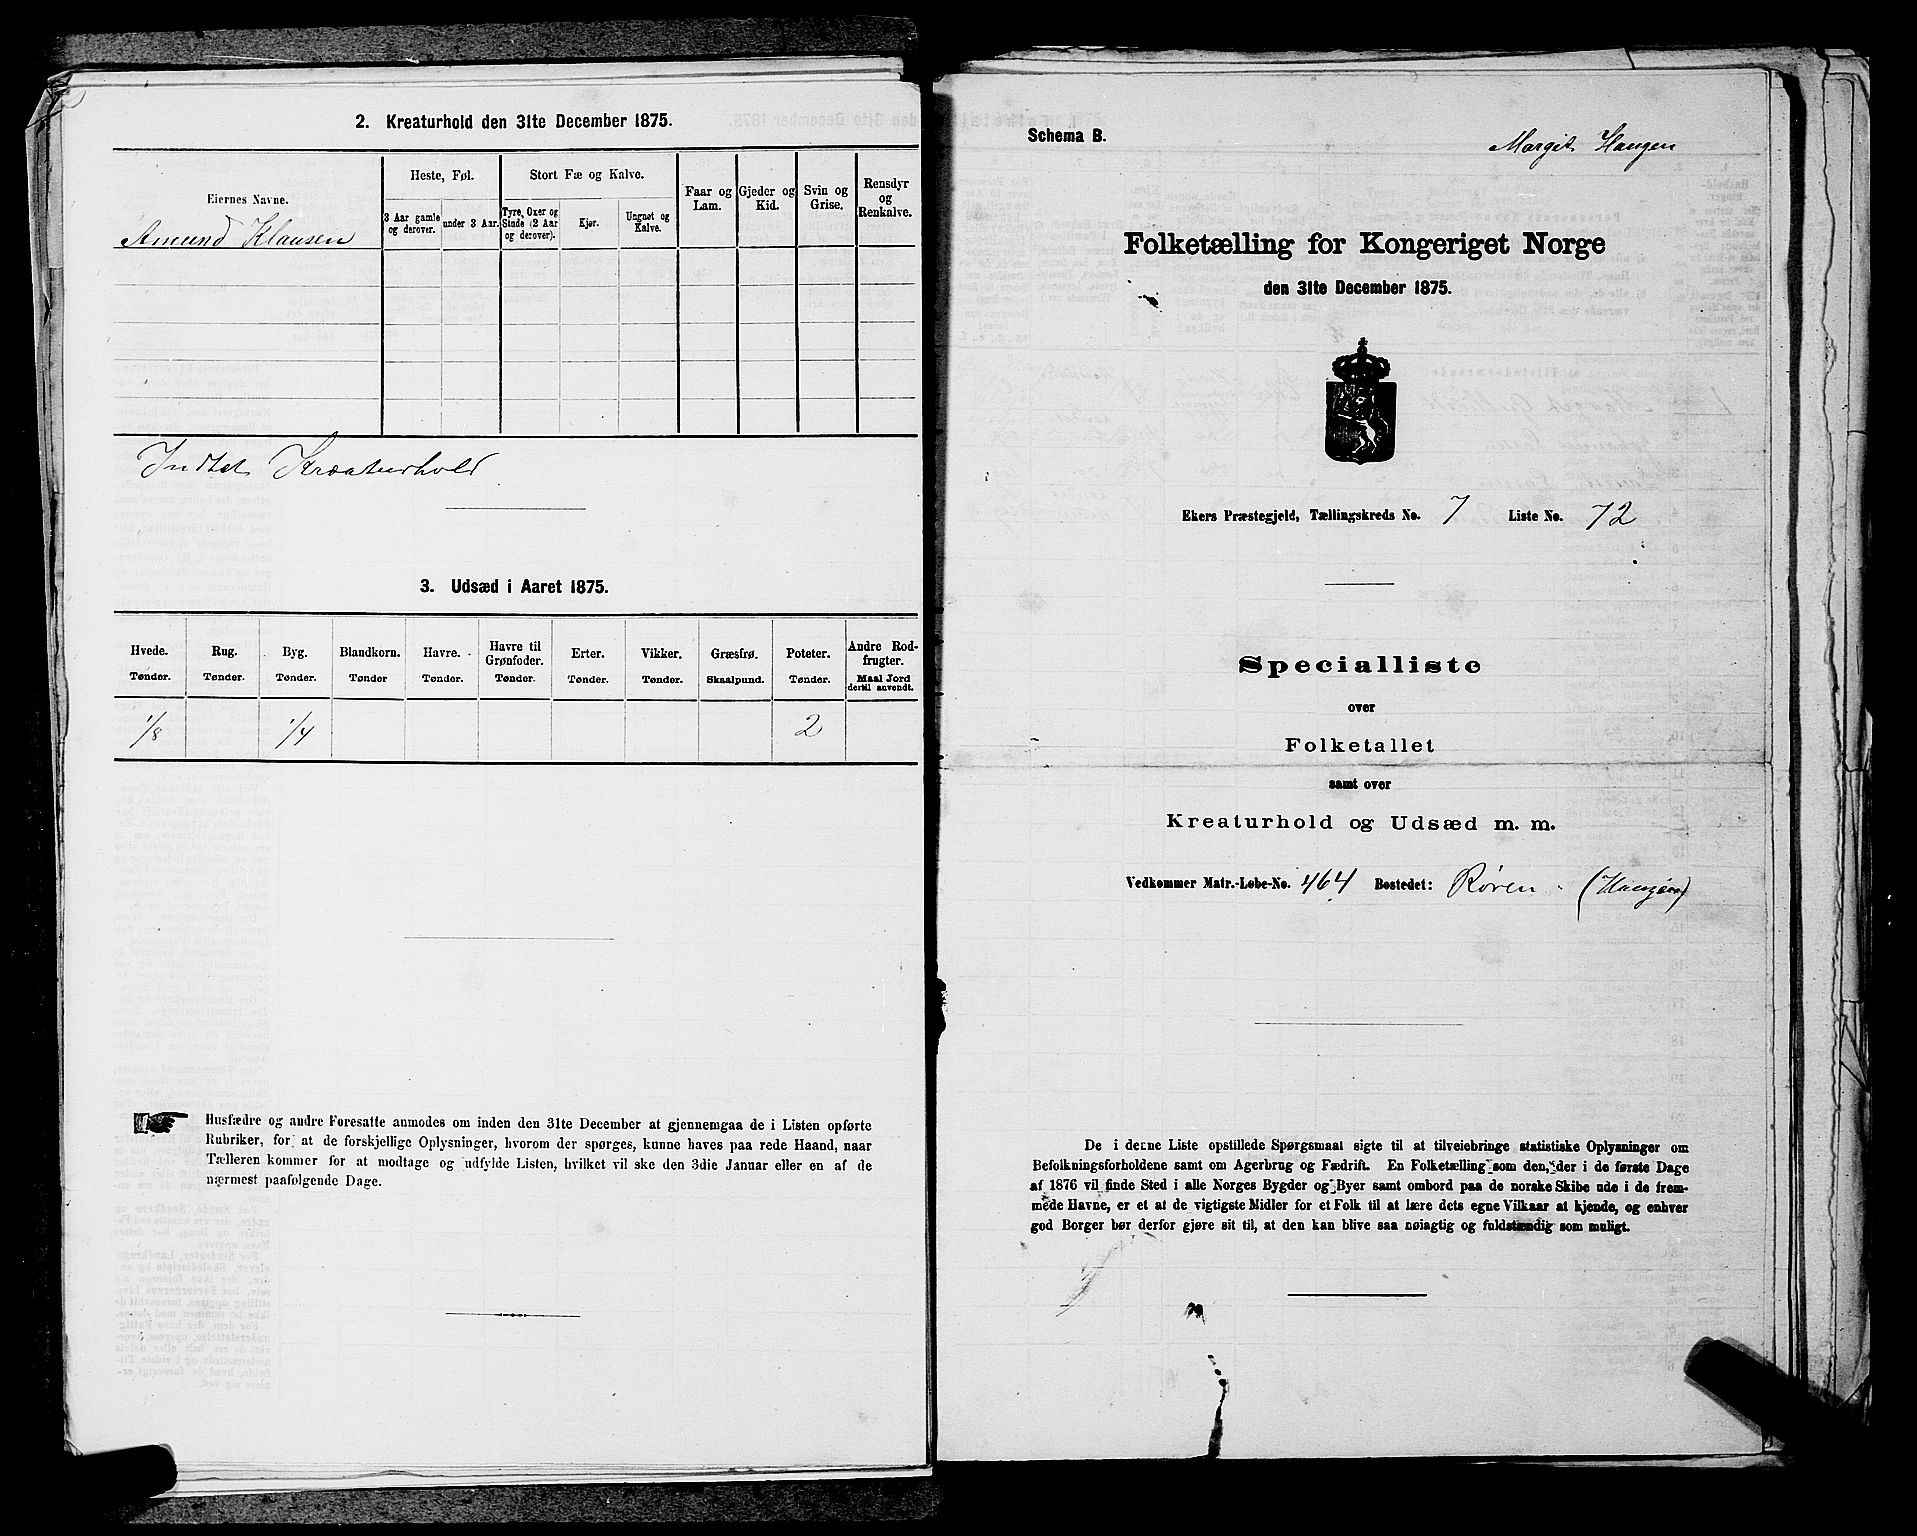 2. Kreaturhold den 31te December 1875.
Eiernes Navne.
Heste, Føl.
Stort Fæ og Kalve.
Faar og Lam.
Gjeder og Kid.
Svin og Grise.
Rensdyr og Renkalve.
3 Aar gamle og derover.
under 3 Aar.
Tyre, Oxer og Stude (2 Aar og derover).
Kjør.
Ungnøt og Kalve.
Amund Klausen
Indtet Kreaturhold
3. Udsæd i Aaret 1875.
Hvede. Rug. Byg. Blandkorn. Havre. Havre til Grønfoder. Erter. Vikker. Græsfrø. Poteter. Andre Rodfrugter.
Tønder. Tønder. Tønder. Tønder Tønder. Tønder. Tønder. Tønder. Skaalpund. Tønder. Maal Jord dertil anvendt.
1/8 1/4 2
Husfædre og andre Foresatte anmodes om inden den 31te December at gjennemgaa de i Listen opførte
Rubriker, for at de forskjellige Oplysninger, hvorom der spørges, kunne haves paa rede Haand, naar
Tælleren kommer for at modtage og udfylde Listen, hvilket vil ske den 3die Januar eller en af de
nærmest paafølgende Dage.
Schema B.
Margit Haugen
Folketælling for Kongeriget Norge
den 31te December 1875.
Ekers Præstegjeld, Tællingskreds No. 7 Liste No. 72
Specialliste
over
Folketallet
samt over
Kreaturhold og Udsæd m. m.
Vedkommer Matr.-Løbe-No. 464 Bostedet: Røren (Haugen)
De i denne Liste opstillede Spørgsmaal sigte til at tilveiebringe statistiske Oplysninger om
Befolkningsforholdene samt om Agerbrug og Fædrift. En Folketælling som den, der i de første Dage
af 1876 vil finde Sted i alle Norges Bygder og Byer samt ombord paa de norske Skibe ude i de frem-
mede Havne, er et af de vigtigste Midler for et Folk til at lære dets egne Vilkaar at kjende, og enhver
god Borger bør derfor gjøre sit til, at den kan blive saa nøiagtig og fuldstændig som muligt.